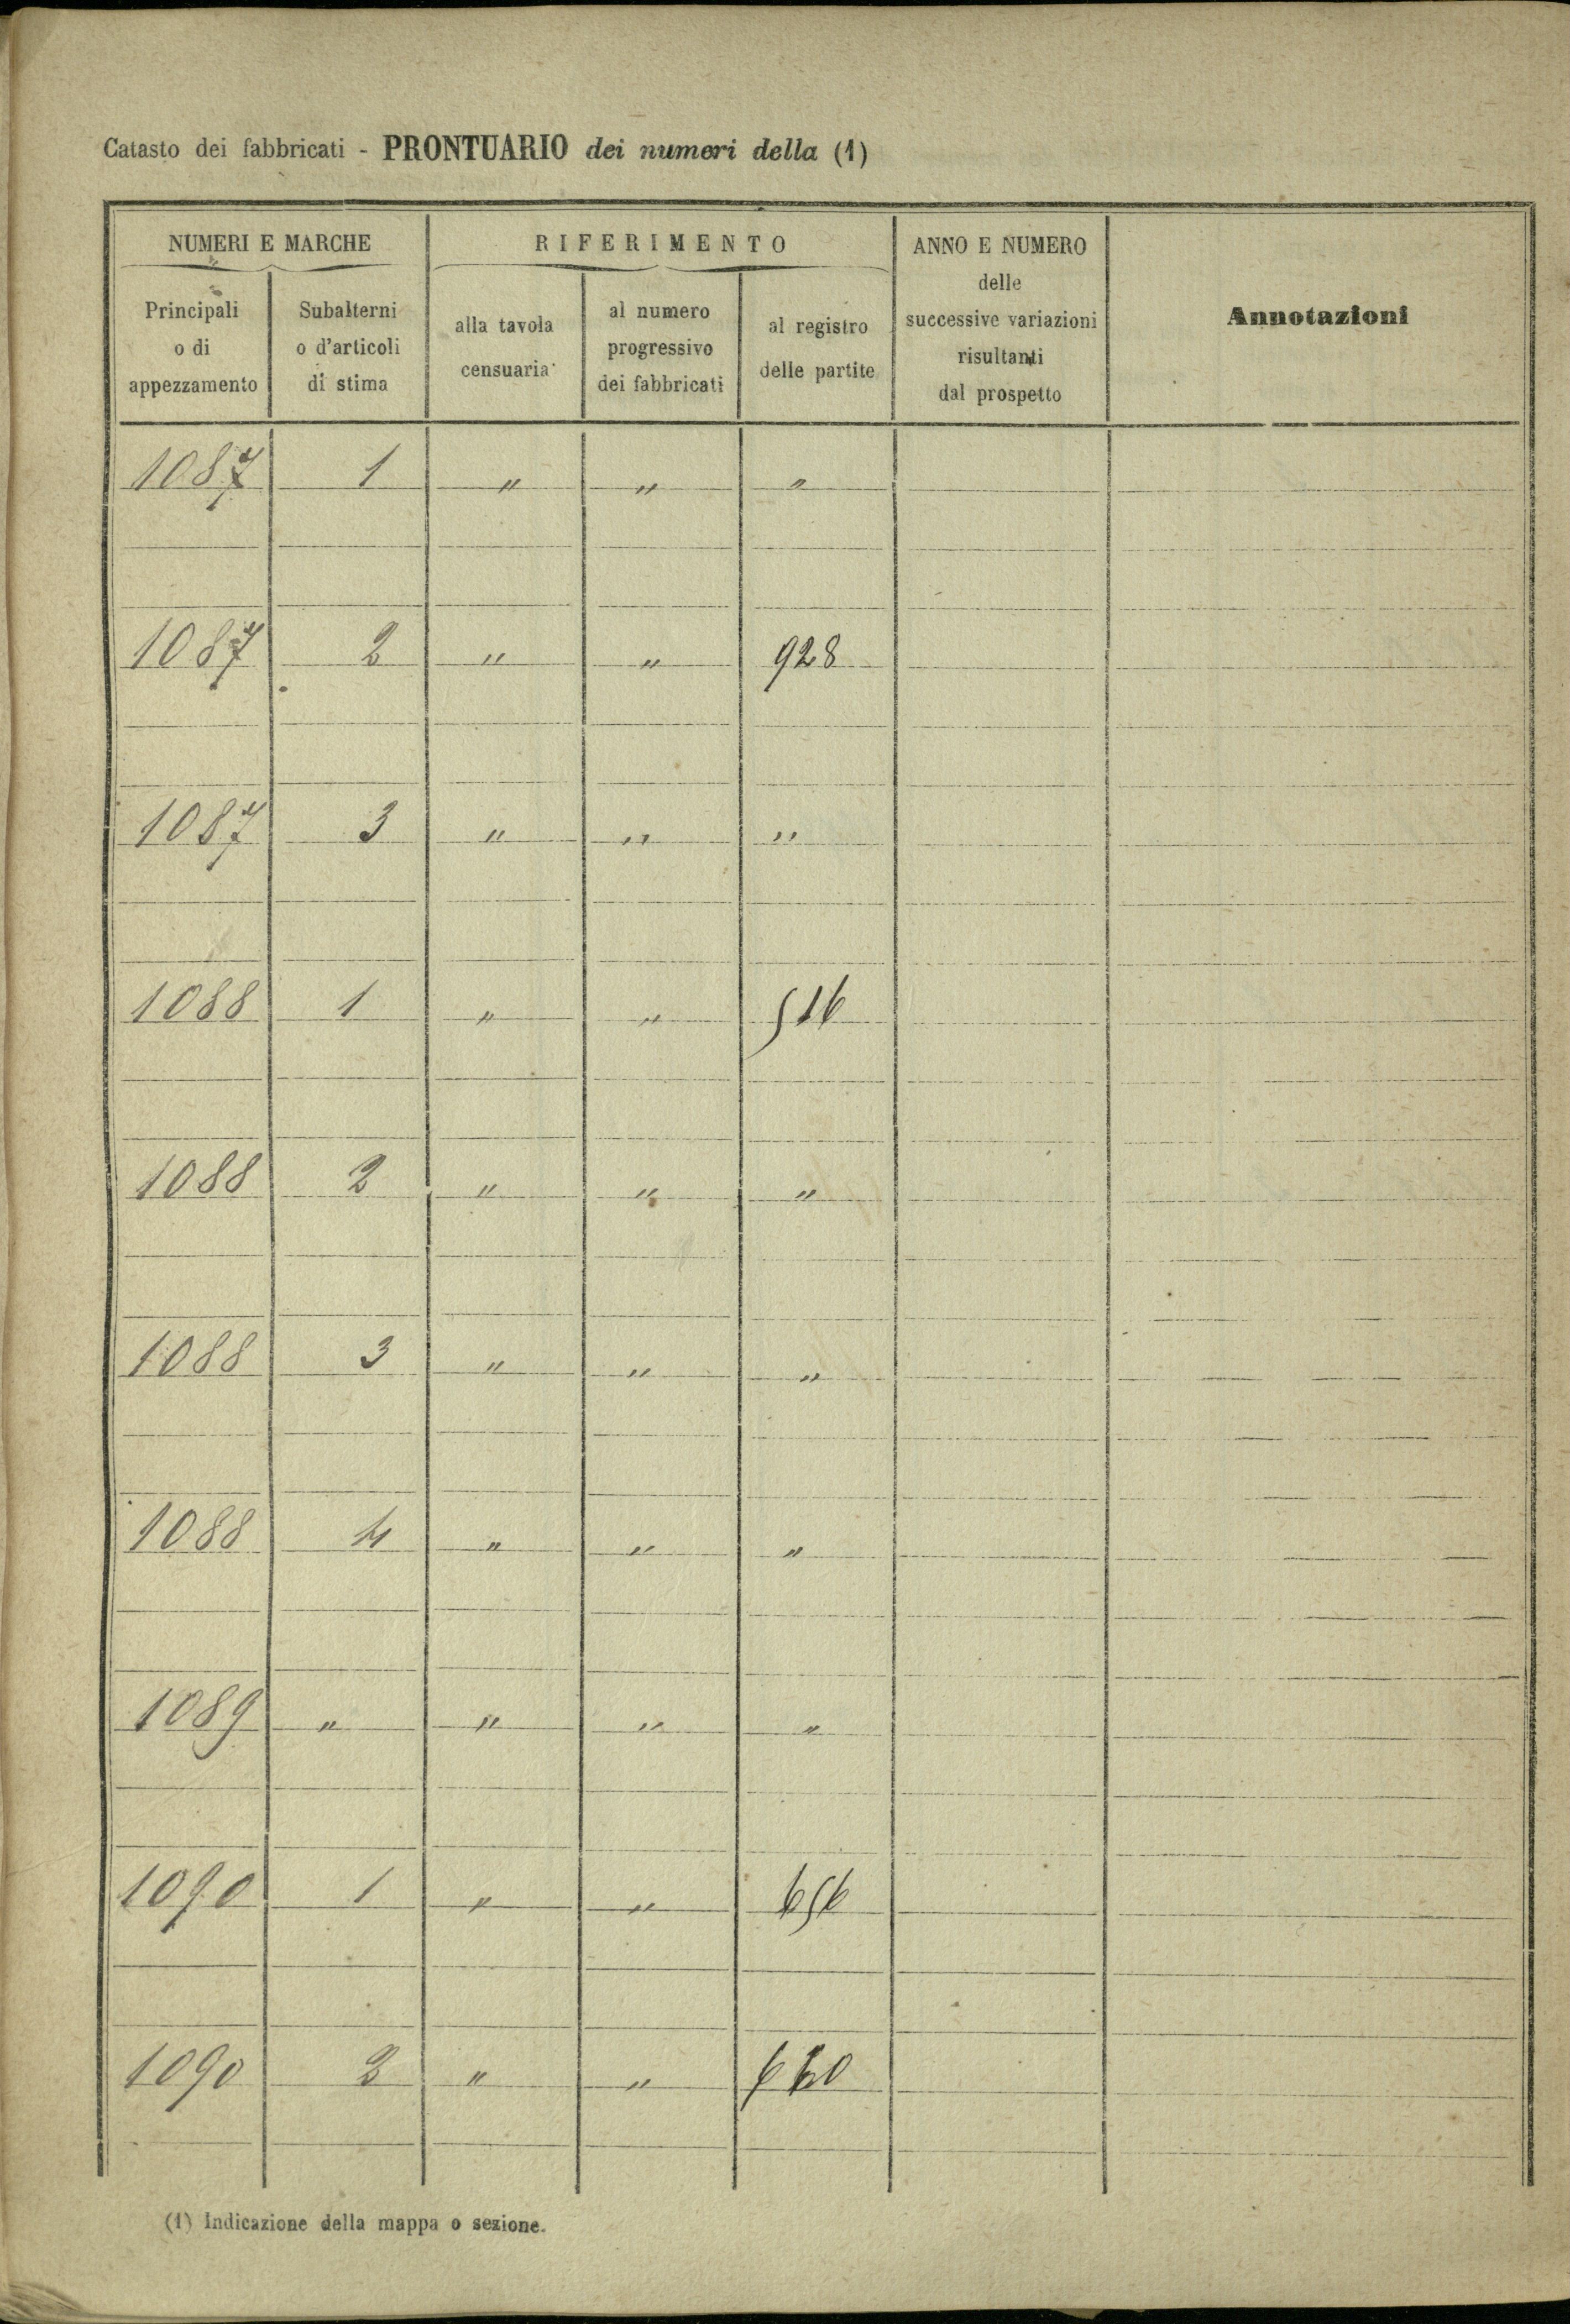 Catasto dei fabbricati - PRONTUARIO dei numeri della (1)
NUMERI E MARCHE
Principali
o di
appezzamento
Subalterni
o d'articoli
di stima
RIFERIMENTO
alla tavola
censuaria
al numero
progressivo
dei fabbricati
al registro
delle partite
ANNO E NUMERO
delle
successive variazioni
risultanti
dal prospetto
Annotazioni
1087 1 " " "
1087 2 " " 928
1087 3 " " "
1088 1 " " 516
1088 2 " " "
1088 3 " " "
1088 4 " " "
1089 " " " "
1090 1 " " 656
1090 2 " " 660
(1) Indicazione della mappa o sezione.